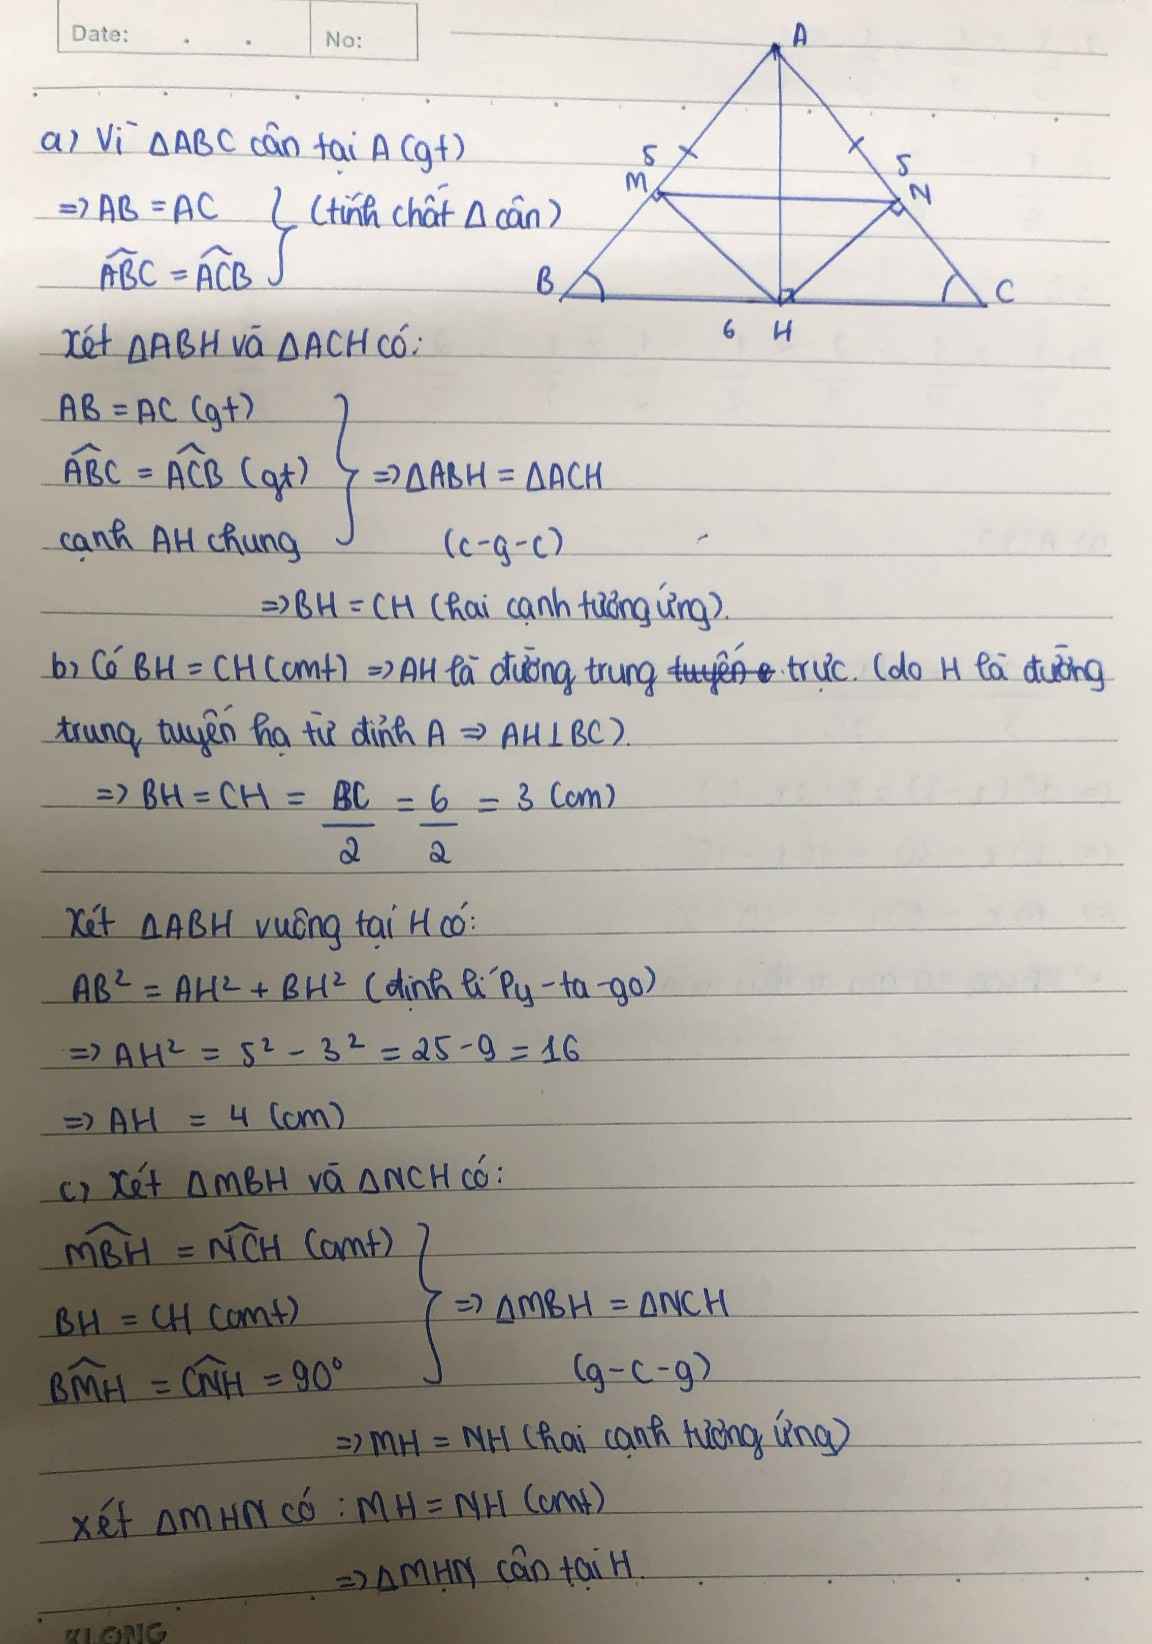 Date: . . No:
A
5 5
M N
B C
6 H
a) Vì ΔABC cân tại A (gt)
=> AB = AC } (tính chất Δ cân)
ABC = ACB
Xét ΔABH và ΔACH có:
AB = AC (gt)
ABC = ACB (gt) } => ΔABH = ΔACH
cạnh AH chung (c-g-c)
=> BH = CH (hai cạnh tương ứng).
b) Có BH = CH (cmt) => AH là đường trung tuyến trực. (do H là đường
trung tuyến hạ từ đỉnh A => AH⊥BC).
=> BH = CH = BC/2 = 6/2 = 3 (cm)
Xét ΔABH vuông tại H có:
AB² = AH² + BH² (định lí Py-ta-go)
=> AH² = 5² - 3² = 25 - 9 = 16
=> AH = 4 (cm)
c) Xét ΔMBH và ΔNCH có:
MBH = NCH (cmt)
BH = CH (cmt) } => ΔMBH = ΔNCH
BMH = CNH = 90° (g-c-g)
=> MH = NH (hai cạnh tương ứng)
xét ΔMHN có : MH = NH (cmt)
=> ΔMHN cân tại H.
KLONG